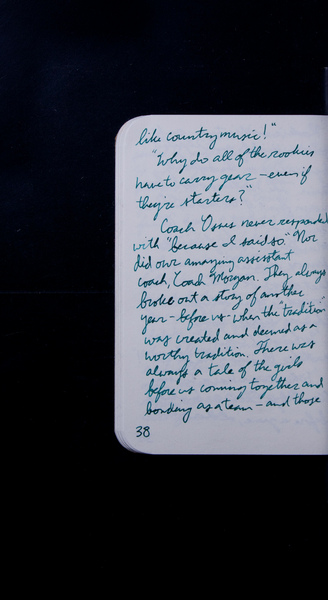 like country music!"
"Why do all of the rookies
have to carry gear - even if
they're starters?"
Coach Osnes never responded
with "because I said so." Nor
did our amazing assistant
coach, Coach Morgan. They always
broke out a story of another
year - before us - when the "tradition"
was created and deemed as a
worthy tradition. There was
always a tale of the girls
before us coming together and
bonding as a team - and those
38